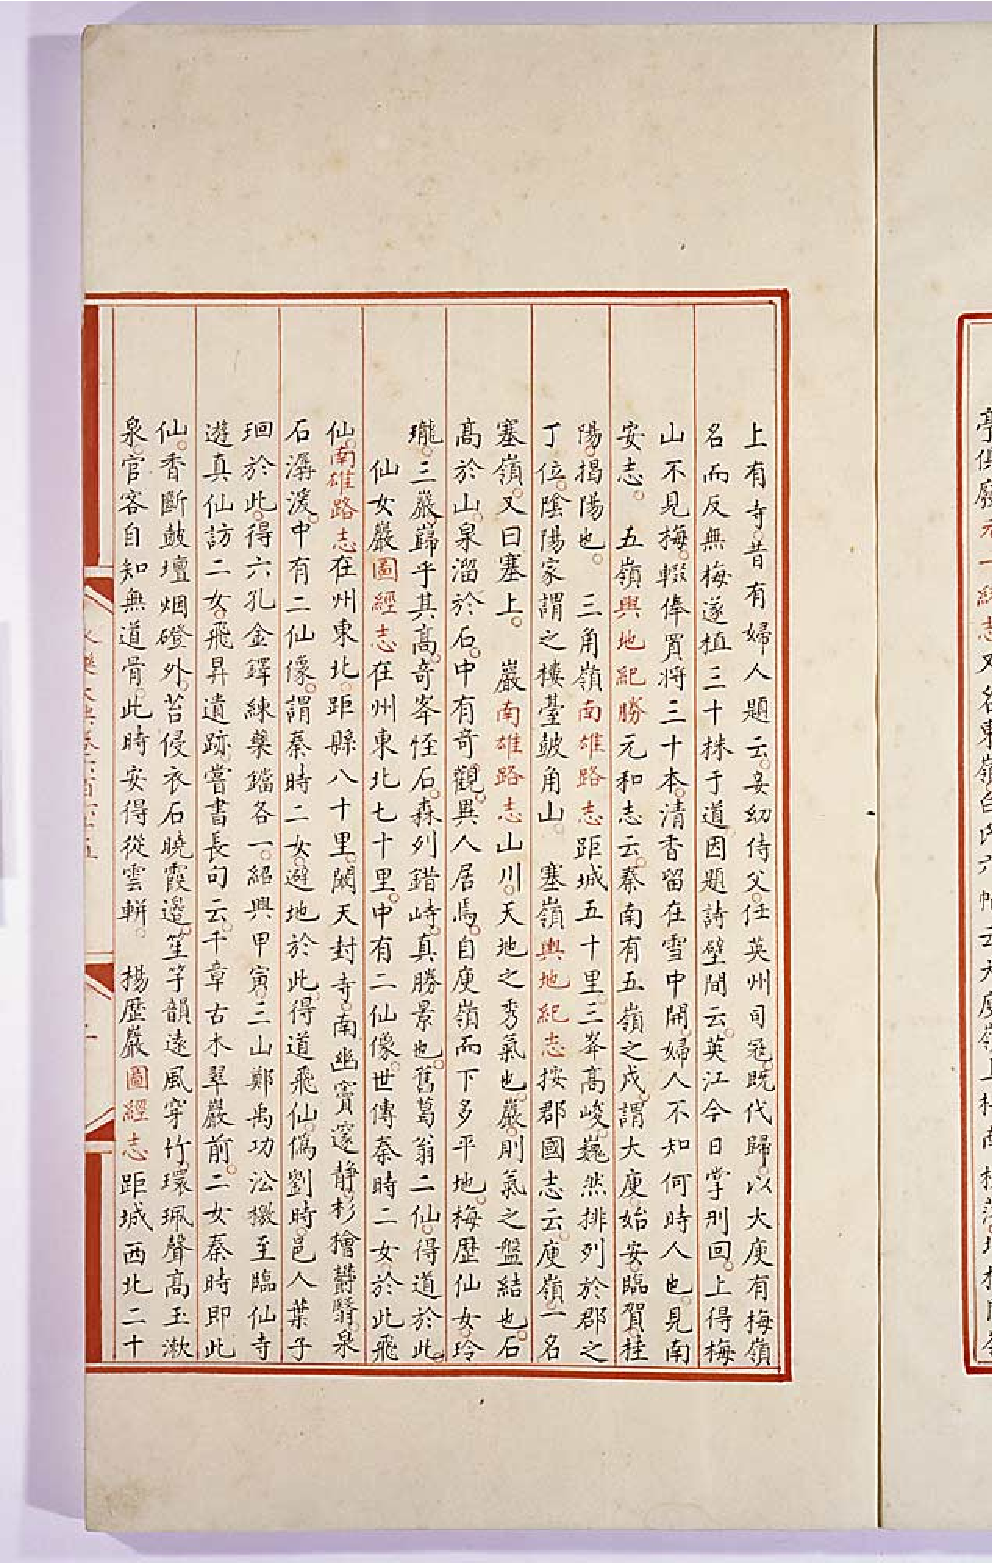 上有寺。昔有婦人題云。妾幼侍父。任英州司冦。既代歸。以大庾有梅嶺
名而反無梅遂植三十株于道因題詩壁間云。英江今日掌刑回。上得梅
山不見梅。輟俸買將三十本。清香留在雪中開。婦人不知何時人也。見南
安志。 五嶺輿地紀勝元和志云。秦南有五嶺之戍。謂大庾。始安。臨賀。桂
陽。揭陽也。 三角嶺南雄路志距城五十里。三峯髙峻。巍然排列於郡之
丁位。陰陽家謂之樓臺皷角山。 塞嶺輿地紀志按郡國志云。庾嶺一名
塞嶺。又曰塞上。 巖南雄路志山川。天地之秀氣也。巖。則氣之盤結也。石
髙於山。泉溜於石。中有奇觀。異人居焉。自庾嶺而下多平地。梅歴仙女。玲
瓏。三巖巋乎其髙。奇峯恠石。森列錯峙。真勝景也。舊葛翁二仙。得道於此。
仙女巖圖經志在州東北七十里。中有二仙像。世傳秦時二女。於此飛
仙。南雄路志在州東北。距縣八十里。闕天封寺。南幽賓邃静。杉檜欝翳。泉
石潺湲。中有二仙像。謂秦時二女。避地於此。得道飛仙。僞劉時。邑人葉子
珊於此。得六孔金鐸練藥鐺各一。紹興甲寅。三山鄭禹功沿檄至臨仙寺
遊真仙訪二女。飛昇遺跡。嘗書長句云。千章古木翠巖前。二女秦時即此
仙。香斷皷壇烟磴外。苔侵衣石曉霞邊。笙竽韻逺風穿竹。環珮聲髙玉漱
泉。官客自知無道骨。此時安得從雲軿。 楊歴巖圖經志距城西北二十
永樂大典卷六百六十五